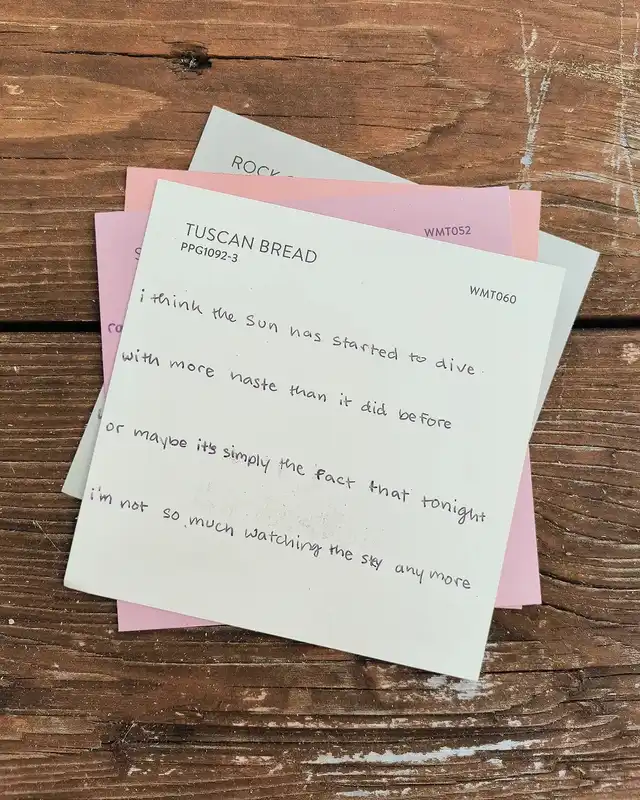 ROCK
WMT052
TUSCAN BREAD
PPG1092-3
WMT060
i think the sun has started to dive
with more haste than it did before
or maybe it's simply the fact that tonight
i'm not so much watching the sky any more